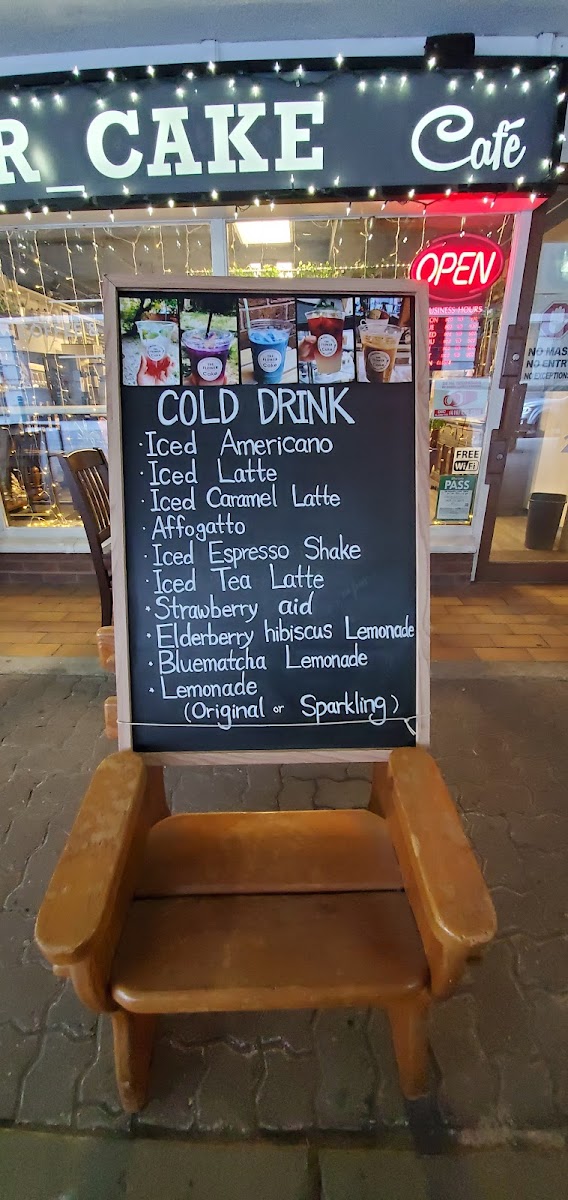 R_CAKE Café
OPEN
BUSINESS HOURS
NO MAS
NO ENTR
NO EXCEPTIONS
FREE
Wi Fi
PASS
COLD DRINK
·Iced Americano
·Iced Latte
·Iced Caramel Latte
·Affogatto
·Iced Espresso Shake
·Iced Tea Latte
·Strawberry aid
·Elderberry hibiscus Lemonade
·Bluematcha Lemonade
·Lemonade
(Original or Sparkling)